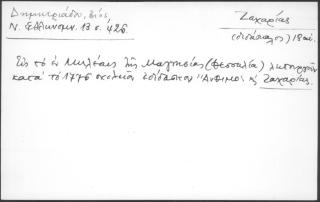 Δημητριάδου, ἔνθ.
Ν. Ἑλληνομν. 13 σ. 426
Ζαχαρίας
(διδάσκαλος) 18 αἰ.
Εἰς τό ἐν Μηλέαις τῆς Μαγνησίας (Θεσσαλία)
κατά τό 1776 σχολεῖον ἐδίδασκον Ἄνθιμος κ Ζαχαρίας.